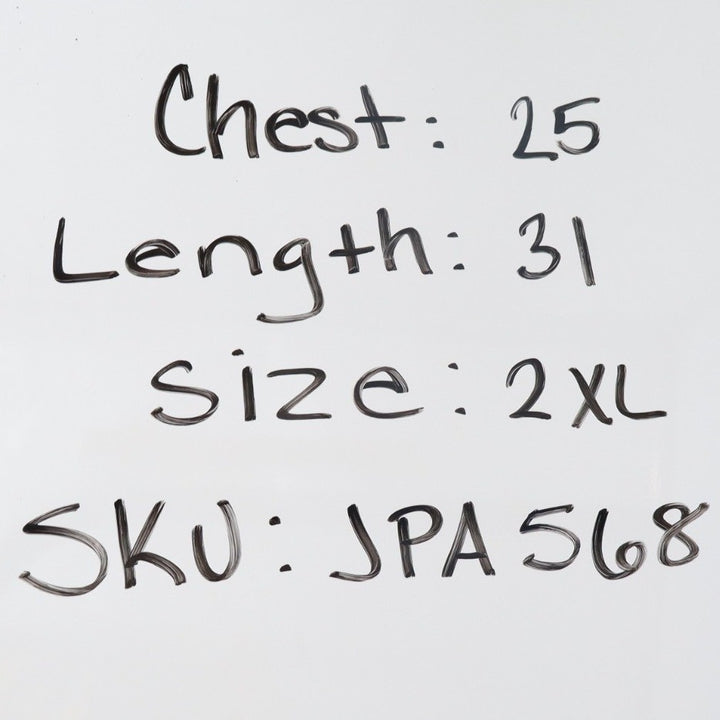 Chest: 25
Length: 31
Size: 2XL
SKU: JPA568